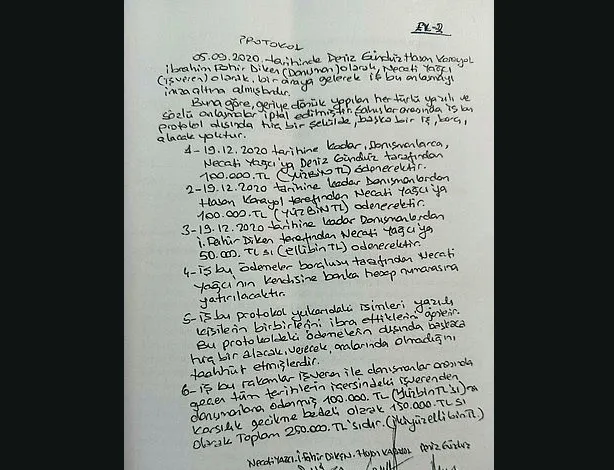 EK-2
PROTOKOL
05.09.2020 tarihinde Deniz Gündüz Hasan Karayol
İbrahim Pahir Diken (Danışman) olarak, Necati Yağcı
(işveren) olarak, bir araya gelerek iş bu anlaşmayı
imza altına almışlardır.
Buna göre, geriye dönük yapılan her türlü yazılı ve
sözlü anlaşmalar iptal edilmiştir. Şahıslar arasında iş bu
protokol dışında hiç bir şekilde, başka bir iş, borç,
alacak yoktur.
1-19.12.2020 tarihine kadar, Danışmanlarca,
Necati Yağcı'ya Deniz Gündüz tarafından
100.000.TL (YÜZBİN TL) ödenecektir.
2-19.12.2020 tarihine kadar Danışmanlardan
Hasan Karayol tarafından Necati Yağcı'ya
100.000.TL (YÜZBİN TL) ödenecektir.
3-19.12.2020 tarihine kadar Danışmanlardan
İ.Pahir Diken tarafından Necati Yağcı'ya
50.000.TL sı (ellibin TL) ödenecektir.
4-iş bu ödemeler borçlusu tarafından Necati
Yağcı'nın kendisine banka hesap numarasına
yatırılacaktır.
5-iş bu protokol yukarıdaki isimleri yazılı
kişilerin birbirlerini ibra ettiklerini gösterir.
Bu protokoldeki ödemelerin dışında başkaca
hiç bir alacak, verecek, aralarında olmadığını
taahhüt etmişlerdir.
6-iş bu rakamlar işveren ile danışmanlar arasında
geçen tüm tarihlerin içersindeki işverenden
danışmanlara ödenmiş 100.000.TL (YÜZBİN TL'Sİ)'na
karşılık gecikme bedeli olarak 150.000.TL sı
olarak Toplam 250.000.TL'sıdır. (ikiyüzellibin TL)
Necati YAĞCI. İ.Pahir DİKEN. Hasan KARAYOL Deniz Gündüz